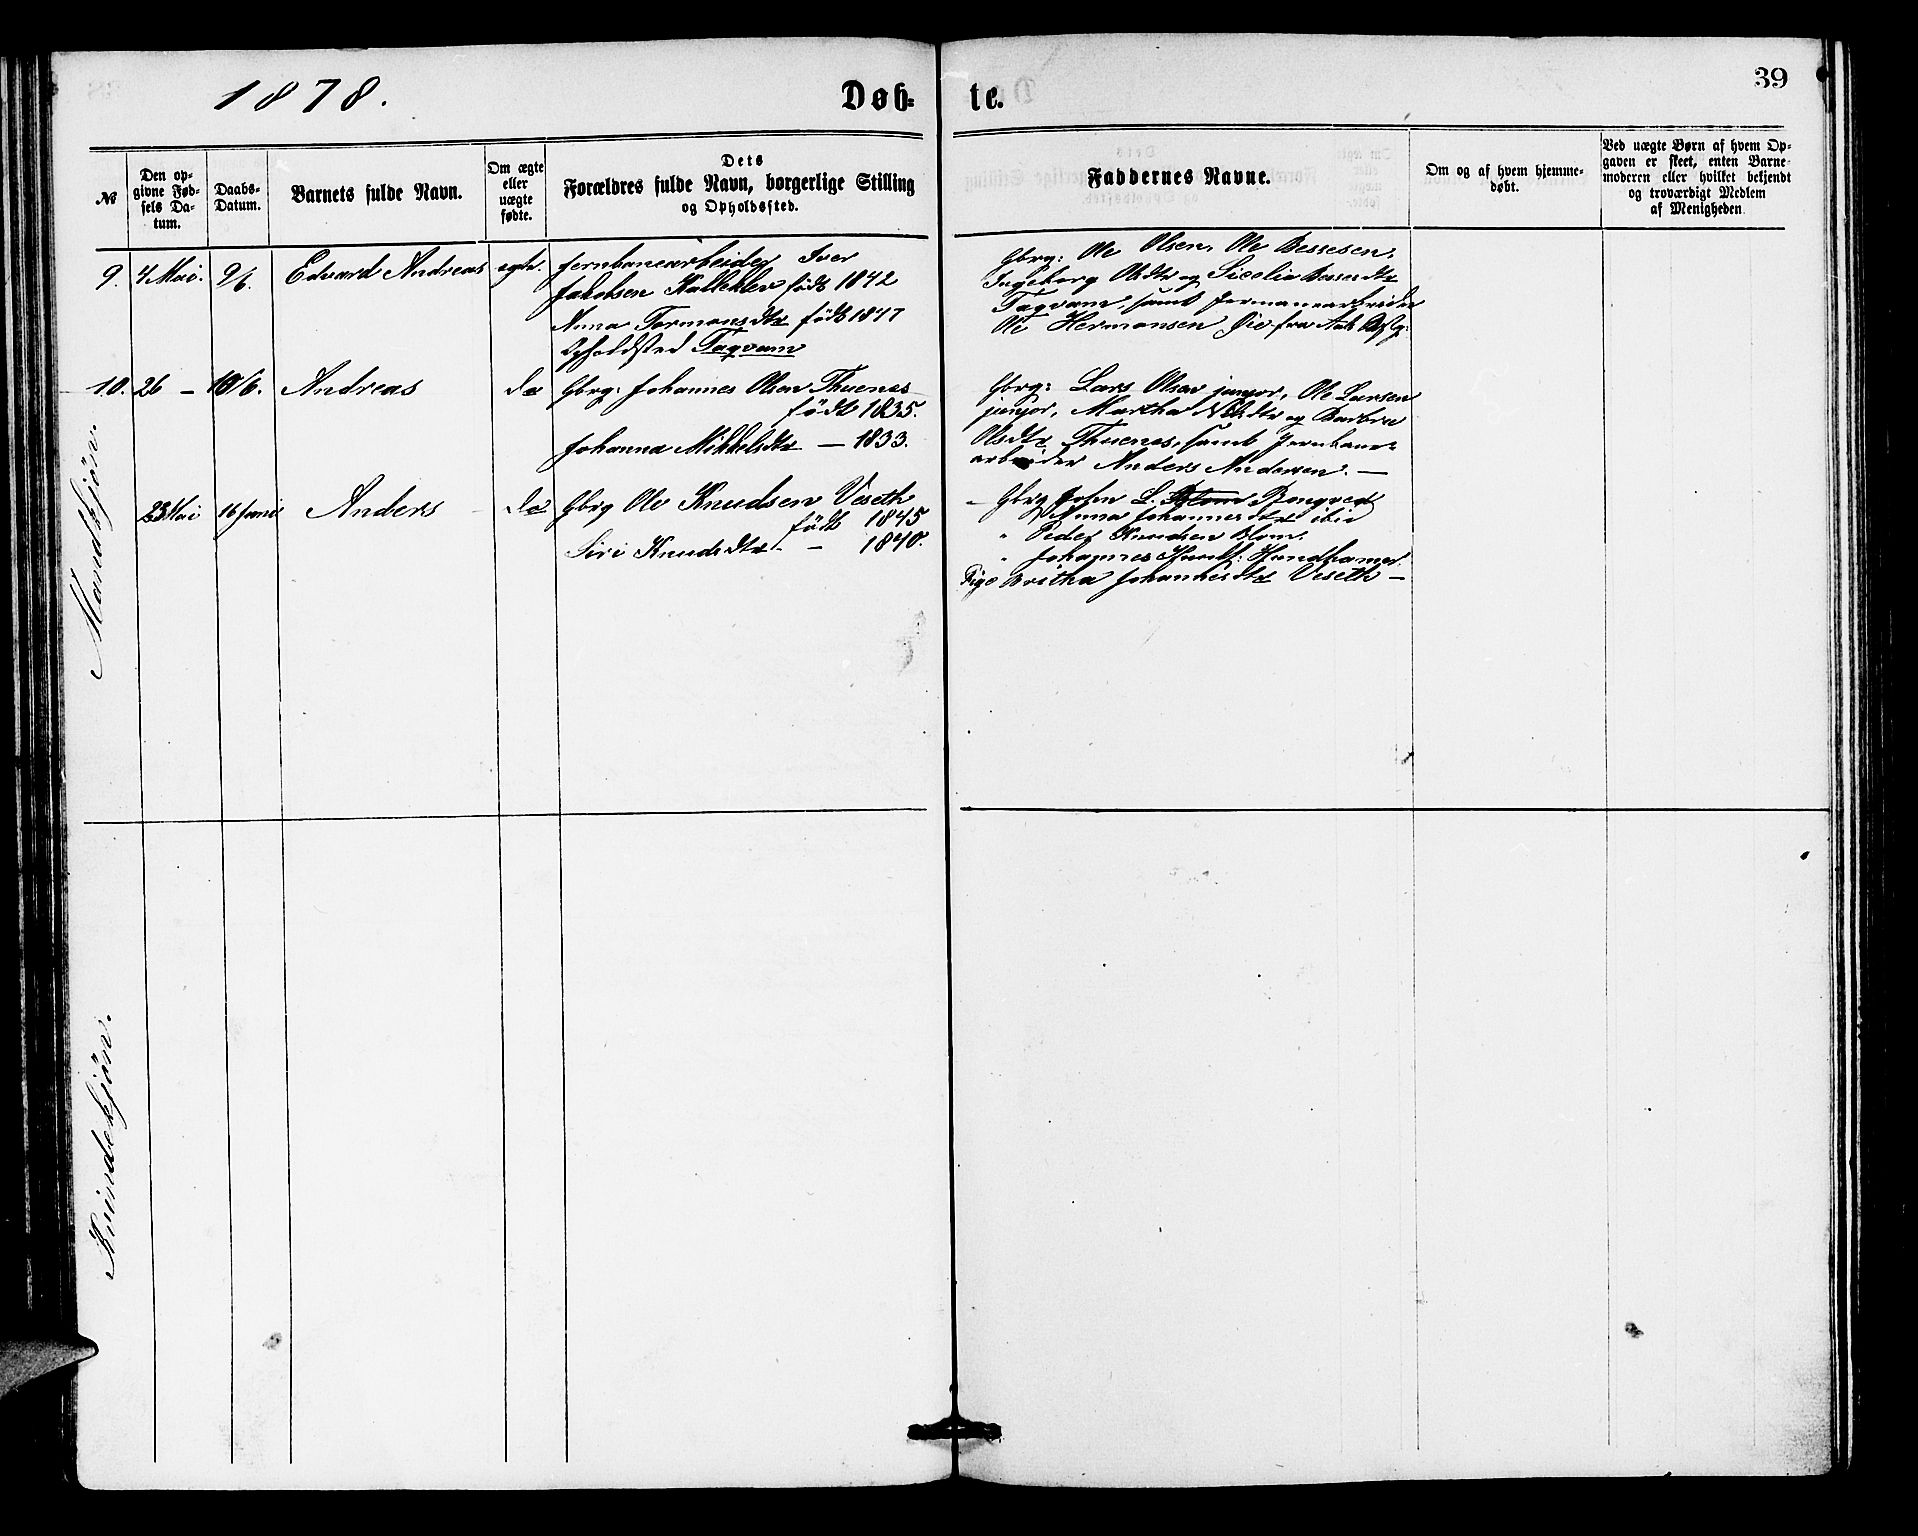 1878.
Døb-
te.
39
№
Den op-
givne Fød-
sels Da-
tum.
Daabs-
Datum.
Barnets fulde Navn.
Om ægte
eller
uægte
fødte.
Dets
Forældres fulde Navn, borgerlige Stilling
og Opholdssted.
Faddernes Navne.
Om og af hvem hjemme-
døbt.
Ved uægte Børn af hvem Op-
gaven er skeet, enten Barne-
moderen eller hvilket bekjendt
og troværdigt Medlem
af Menigheden
Mandkjön.
9. 4 Mai. 9/6. Edvard Andreas egte. Jernbanearbeider Iver
Jakobsen født 1842
Anna Tormonsdtr født 1847
Opholdsted Taqvam
Gbrg: Ole Olsen, Ole Bessesen,
Ingeborg Olsdtr og Besses dtr
Taqvam, samt
Ole Hermansen Øie fra
10. 26 – 10/6. Andreas do Gbrg: Johannes Olsen Thuenes
født 1835.
Johanna Mikkelsdtr – 1833.
Gbrg: Lars Olsen junjor, Ole Larsen
junjor, Martha dtr og Barbra
Olsdtr Thuenes, samt Jernbane-
arbeider Anders Andersen. –
23 Mai 16 Juni Anders do Gbrg Ole Knudsen Veseth
født 1845
Siri Knudsdtr – 1840.
– Gbrg John L.
Anna Johannesdtr ibid
" Peder Knudsen Blom.
" Johannes Hundhamer.
Pige Britha Johannesdtr Veseth –
Kvindekjön.